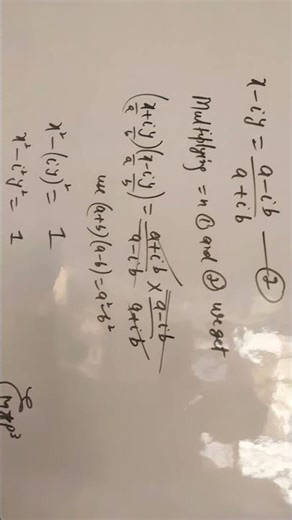 x-iy = a-ib/a+ib — ②
Multiplying = n ① and ② we get
(x+iy)(x-iy) = a+ib/a-ib × a-ib/a+ib
a b a b
use (a+b)(a-b) = a²-b²
x²-(iy)² = 1
x²-i²y² = 1